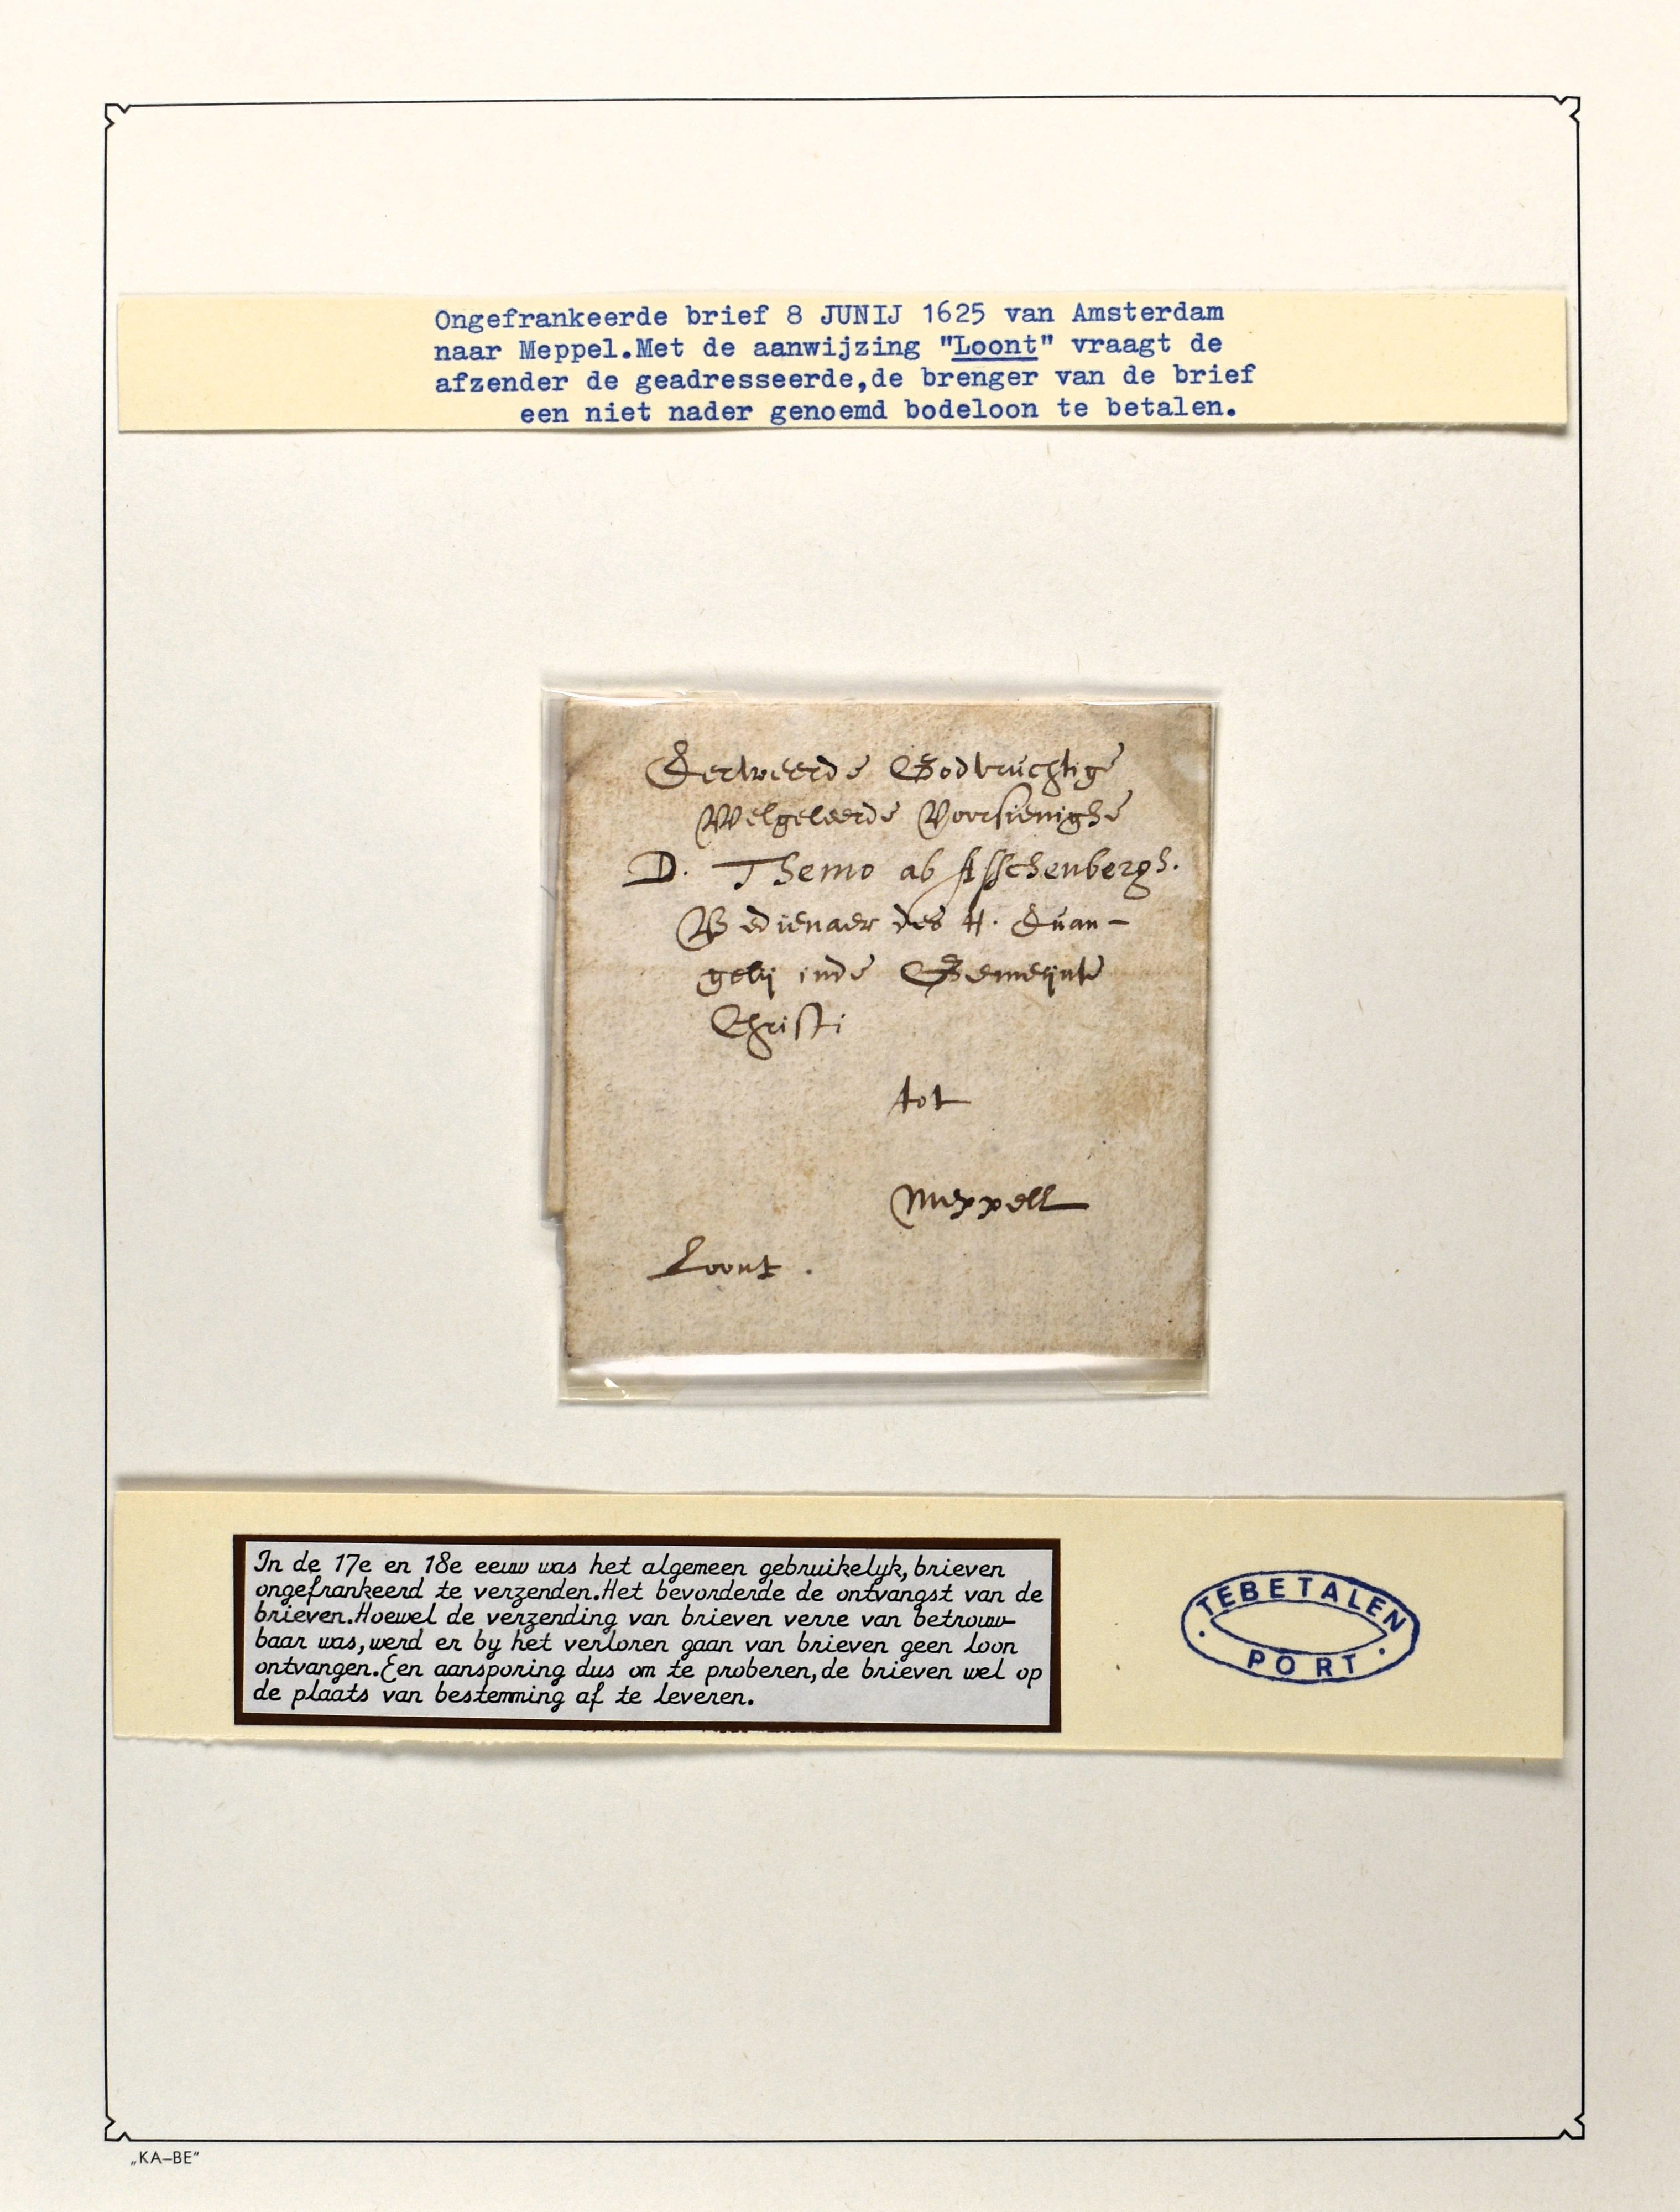 Ongefrankeerde brief 8 JUNIJ 1625 van Amsterdam
naar Meppel.Met de aanwijzing "Loont" vraagt de
afzender de geadresseerde,de brenger van de brief
een niet nader genoemd bodeloon te betalen.
Eerweerde Godvruchtige
Welgeleerde Voorsienighe
D. Themo ab Asschenbergh.
Bedienaer des H. Euan-
gelij inde Gemeijnte
Christi
tot
Meppell
Loont.
In de 17e en 18e eeuw was het algemeen gebruikelyk,brieven
ongefrankeerd te verzenden.Het bevorderde de ontvangst van de
brieven.Hoewel de verzending van brieven verre van betrouw-
baar was,werd er by het verloren gaan van brieven geen loon
ontvangen.Een aansporing dus om te proberen,de brieven wel op
de plaats van bestemming af te leveren.
TEBETALEN
· PORT ·
„KA–BE"